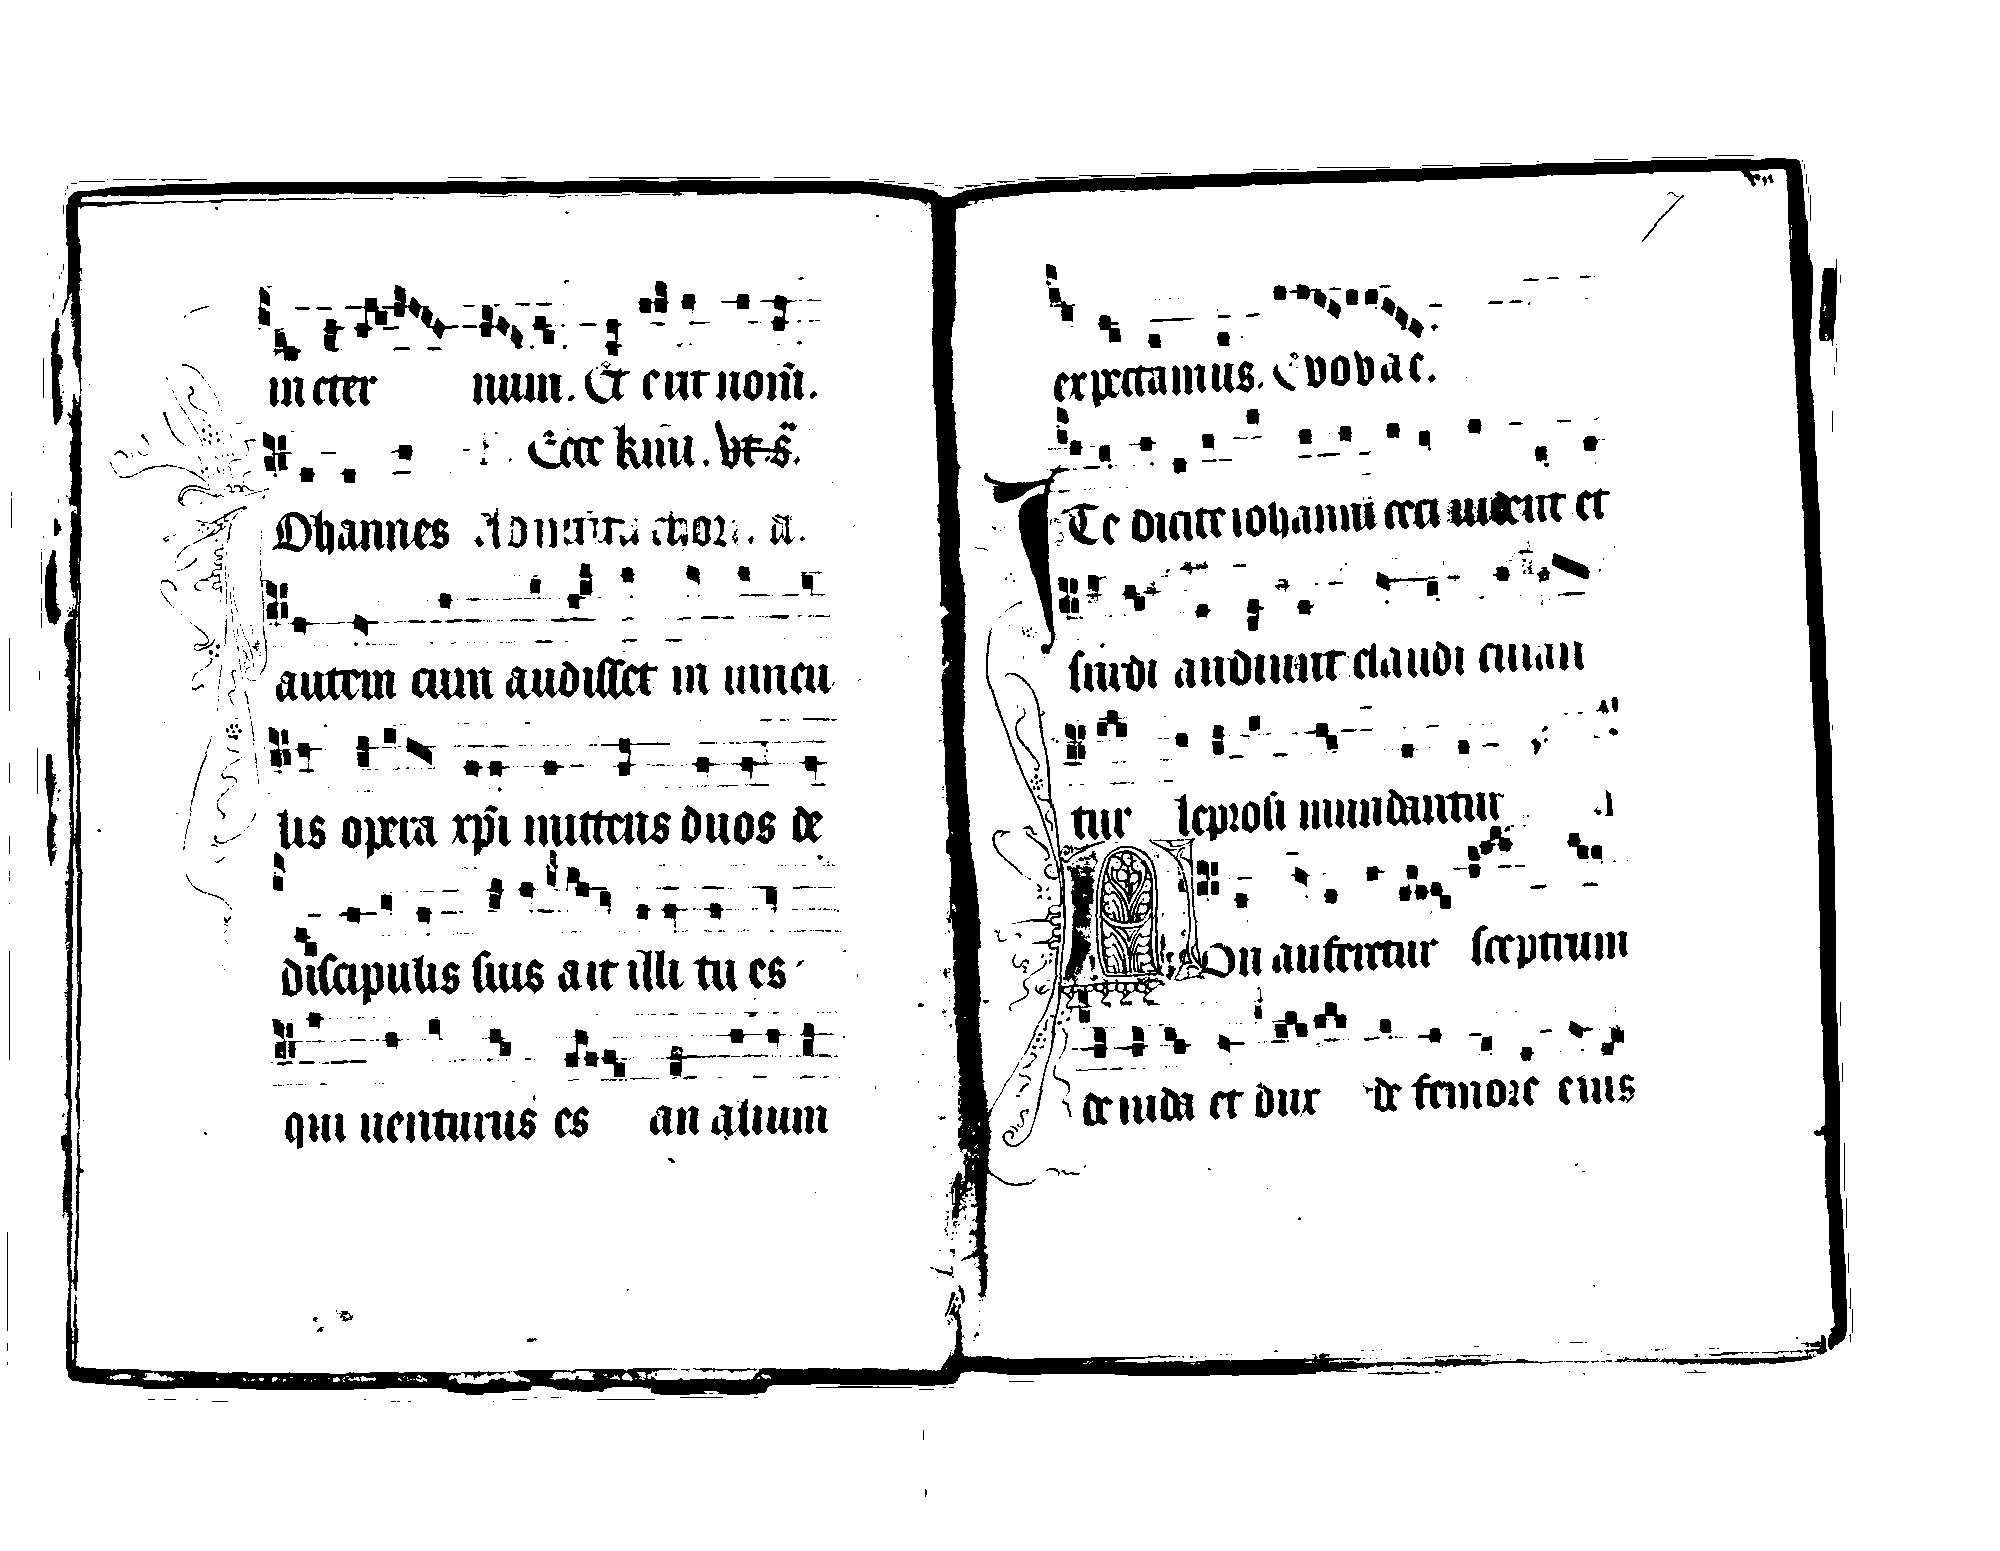 in eter num. Et erit nom̄.
Ecce
Ohannes
autem cum audisset in uincu
lis opera xp̄i mittens duos de
discipulis suis ait illi tu es
qui uenturus es an alium
7
expectamus. Evovae.
Te dicite iohanni ceci uident et
surdi audiunt claudi curan
tur leprosi mundantur
On auferetur sceptrum
de iuda et dux de femore eius